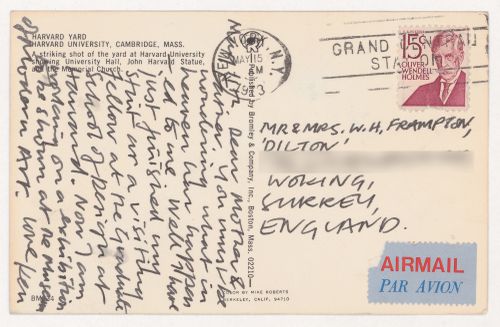 HARVARD YARD
HARVARD UNIVERSITY, CAMBRIDGE, MASS.
striking shot of the yard at Harvard University
showing University Hall, John Harvard Statue,
and the Memorial Church.
NEW YORK, N.Y.
MAY 15
PM
GRAND CENTRAL
STATION
15¢
OLIVER
WENDELL
HOLMES
My dear Mother &
Father, you must be
wondering what in
heaven has happened
to me. Well I have
just finished my
stint as a visiting
fellow at the Graduate
School of Design at
Harvard. Now I am
working on a exhibition
at the Museum
of Modern Art. Love Ken
Published by Bromley & Company, Inc., Boston, Mass. 02210
MR & MRS. W.H. FRAMPTON,
'DILTON'
WOKING,
SURREY,
ENGLAND.
AIRMAIL
PAR AVION
COLOR BY MIKE ROBERTS
BERKELEY, CALIF. 94710